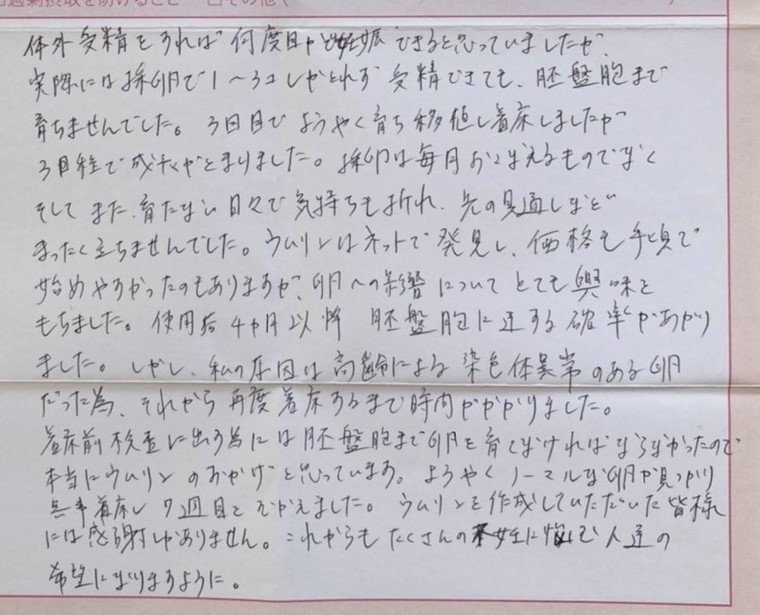 過剰摂取を防げること □その他（
体外受精をすれば何度目かで妊娠できると思っていましたが、
実際には採卵で1〜3コしかとれず 受精できても、胚盤胞まで
育ちませんでした。3回目でようやく育ち移植し着床しましたが
成長がとまりました。採卵は毎月おこなえるものでなく
そして また、育たない日々で気持ちも折れ、先の見通しなど
まったく立ちませんでした。ウムリンはネットで発見し、価格も手頃で
始めやすかったのもありますが、卵への影響についてとても興味を
もちました。使用後4ヶ月以降 胚盤胞に達する確率があがり
ました。しかし、私の原因は高齢による染色体異常のある卵
だった為、それから再度着床するまで時間がかかりました。
着床前検査に出す為には胚盤胞まで卵を育てなければならなかったので
本当にウムリンのおかげと思っています。ようやくノーマルな卵が見つかり
無事着床し 7週目をむかえました。ウムリンを作成していただいた皆様
には感謝しかありません。これからもたくさんの不妊に悩む人達の
希望になりますように。